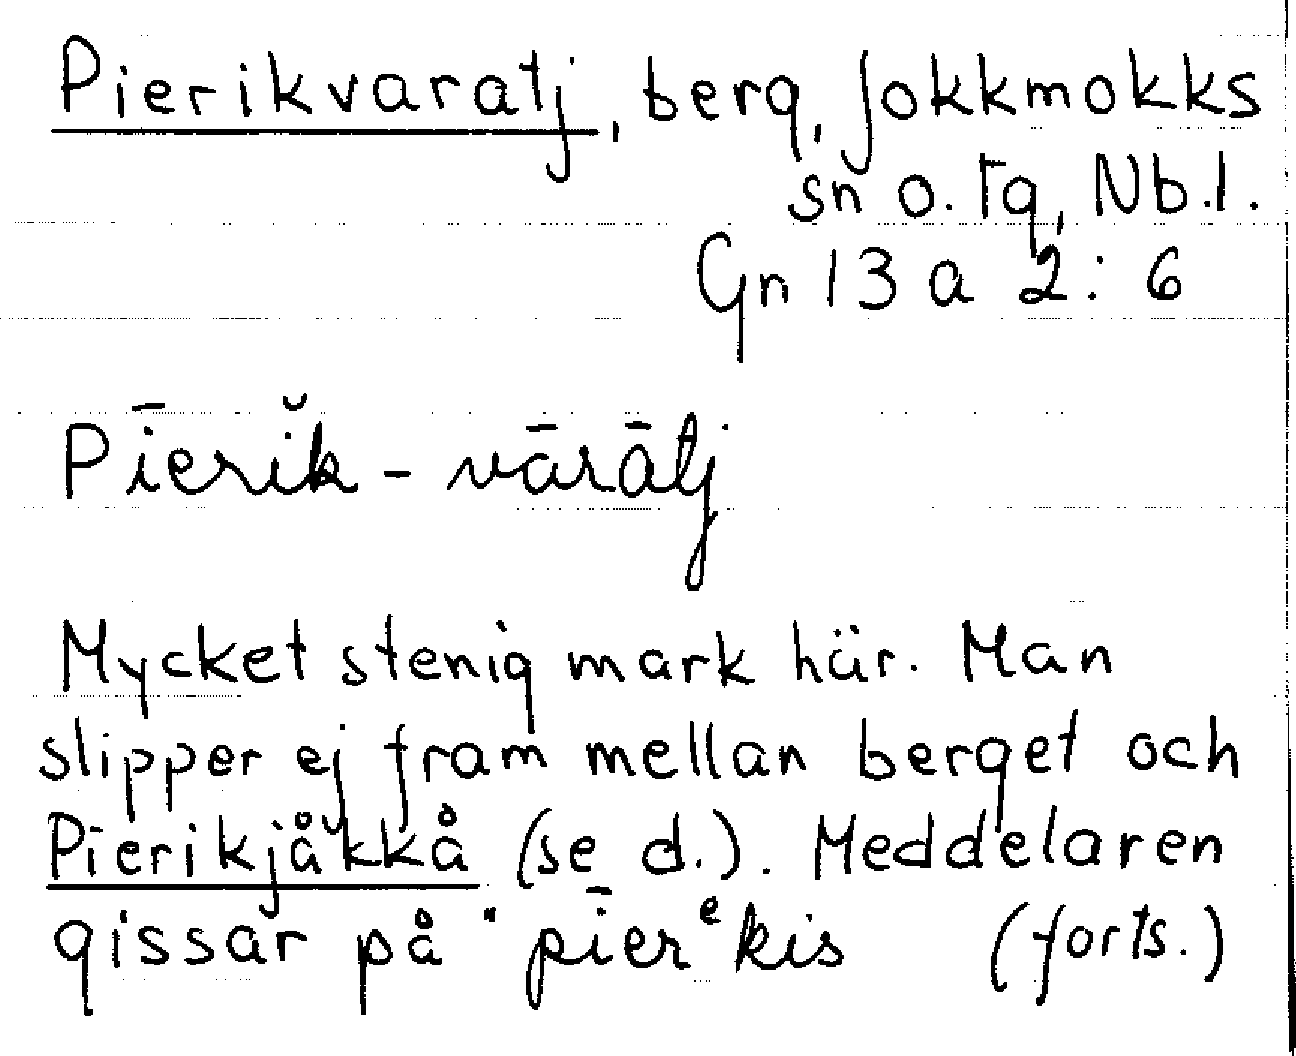 Pierikvaratj, berg, Jokkmokks
sn o. tg, Nb.l.
Gn 13 a 2:6
Pīerĭk - vārātj
Mycket stenig mark här. Man
slipper ej fram mellan berget och
Pierikjåkkå (se d.). Meddelaren
gissar på "pīerᵉkis (forts.)